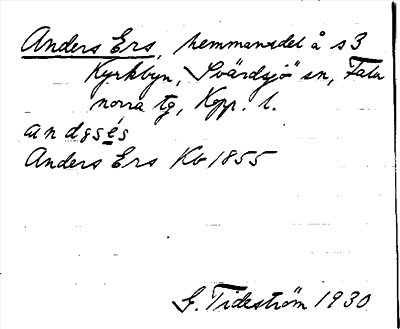 Anders Ers, hemmansdel å s3
Kyrkbyn, Svärdsjö sn, Falu
norra tg, Kopp. l.
andgsés
Anders Ers Kb 1855
G. Tideström 1930